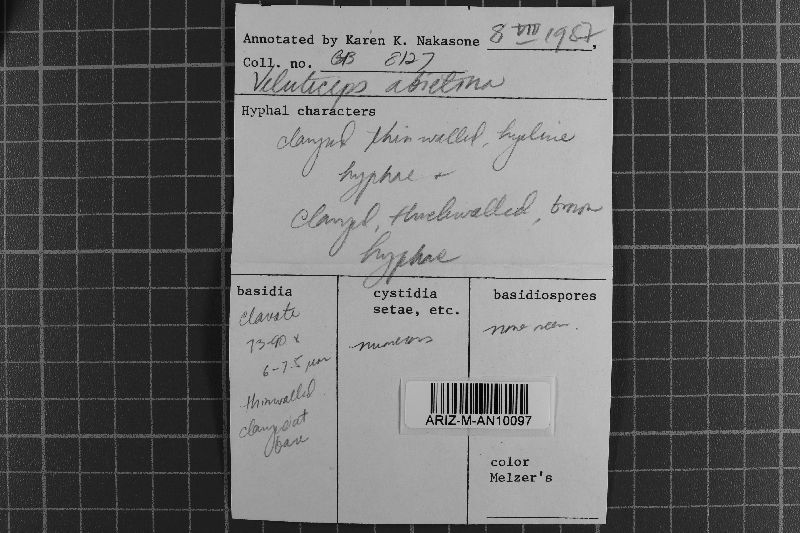 Annotated by Karen K. Nakasone 8 VIII 1987,
Coll. no. GB 8127
Veluticeps abietina
Hyphal characters
clamped thinwalled, hyaline
hyphae +
clamped, thickwalled, brown
hyphae
basidia
clavate
73-90 x
6-7.5 µm
thinwalled
clamped at
base
cystidia
setae, etc.
numerous
basidiospores
none seen.
ARIZ-M-AN10097
color
Melzer's